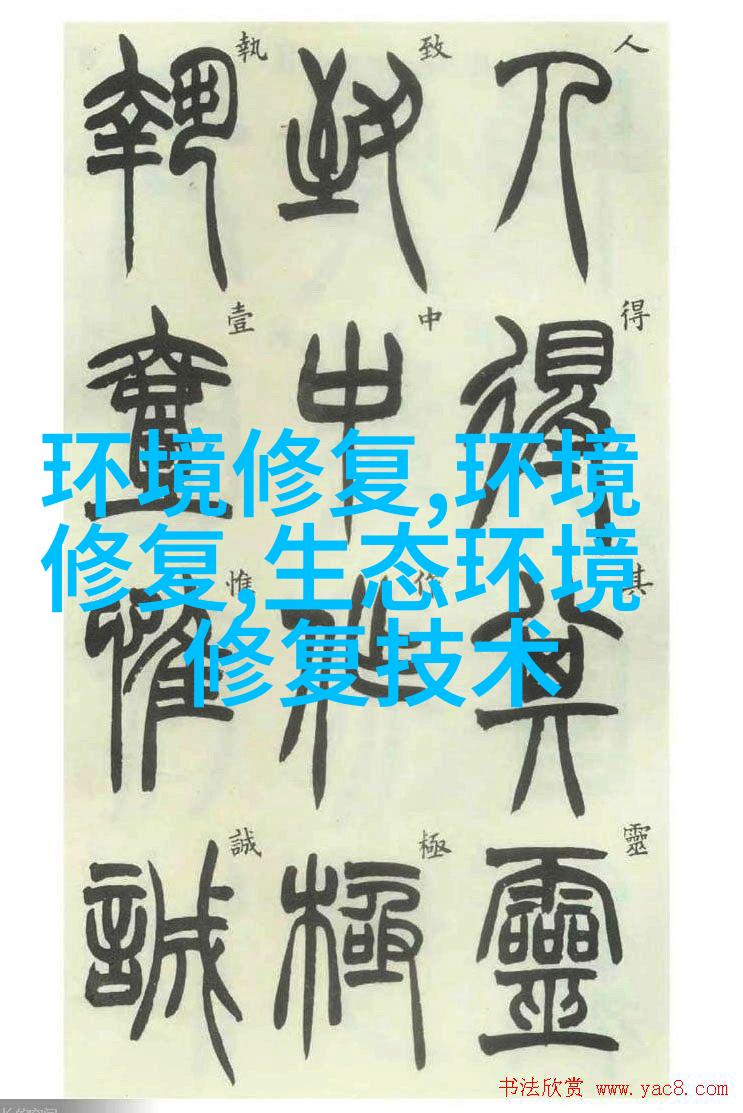 人得其靈
致中作極
執壹惟誠
环境修复,环境
修复,生态环境
修复技术
书法欣赏 www.yac8.com